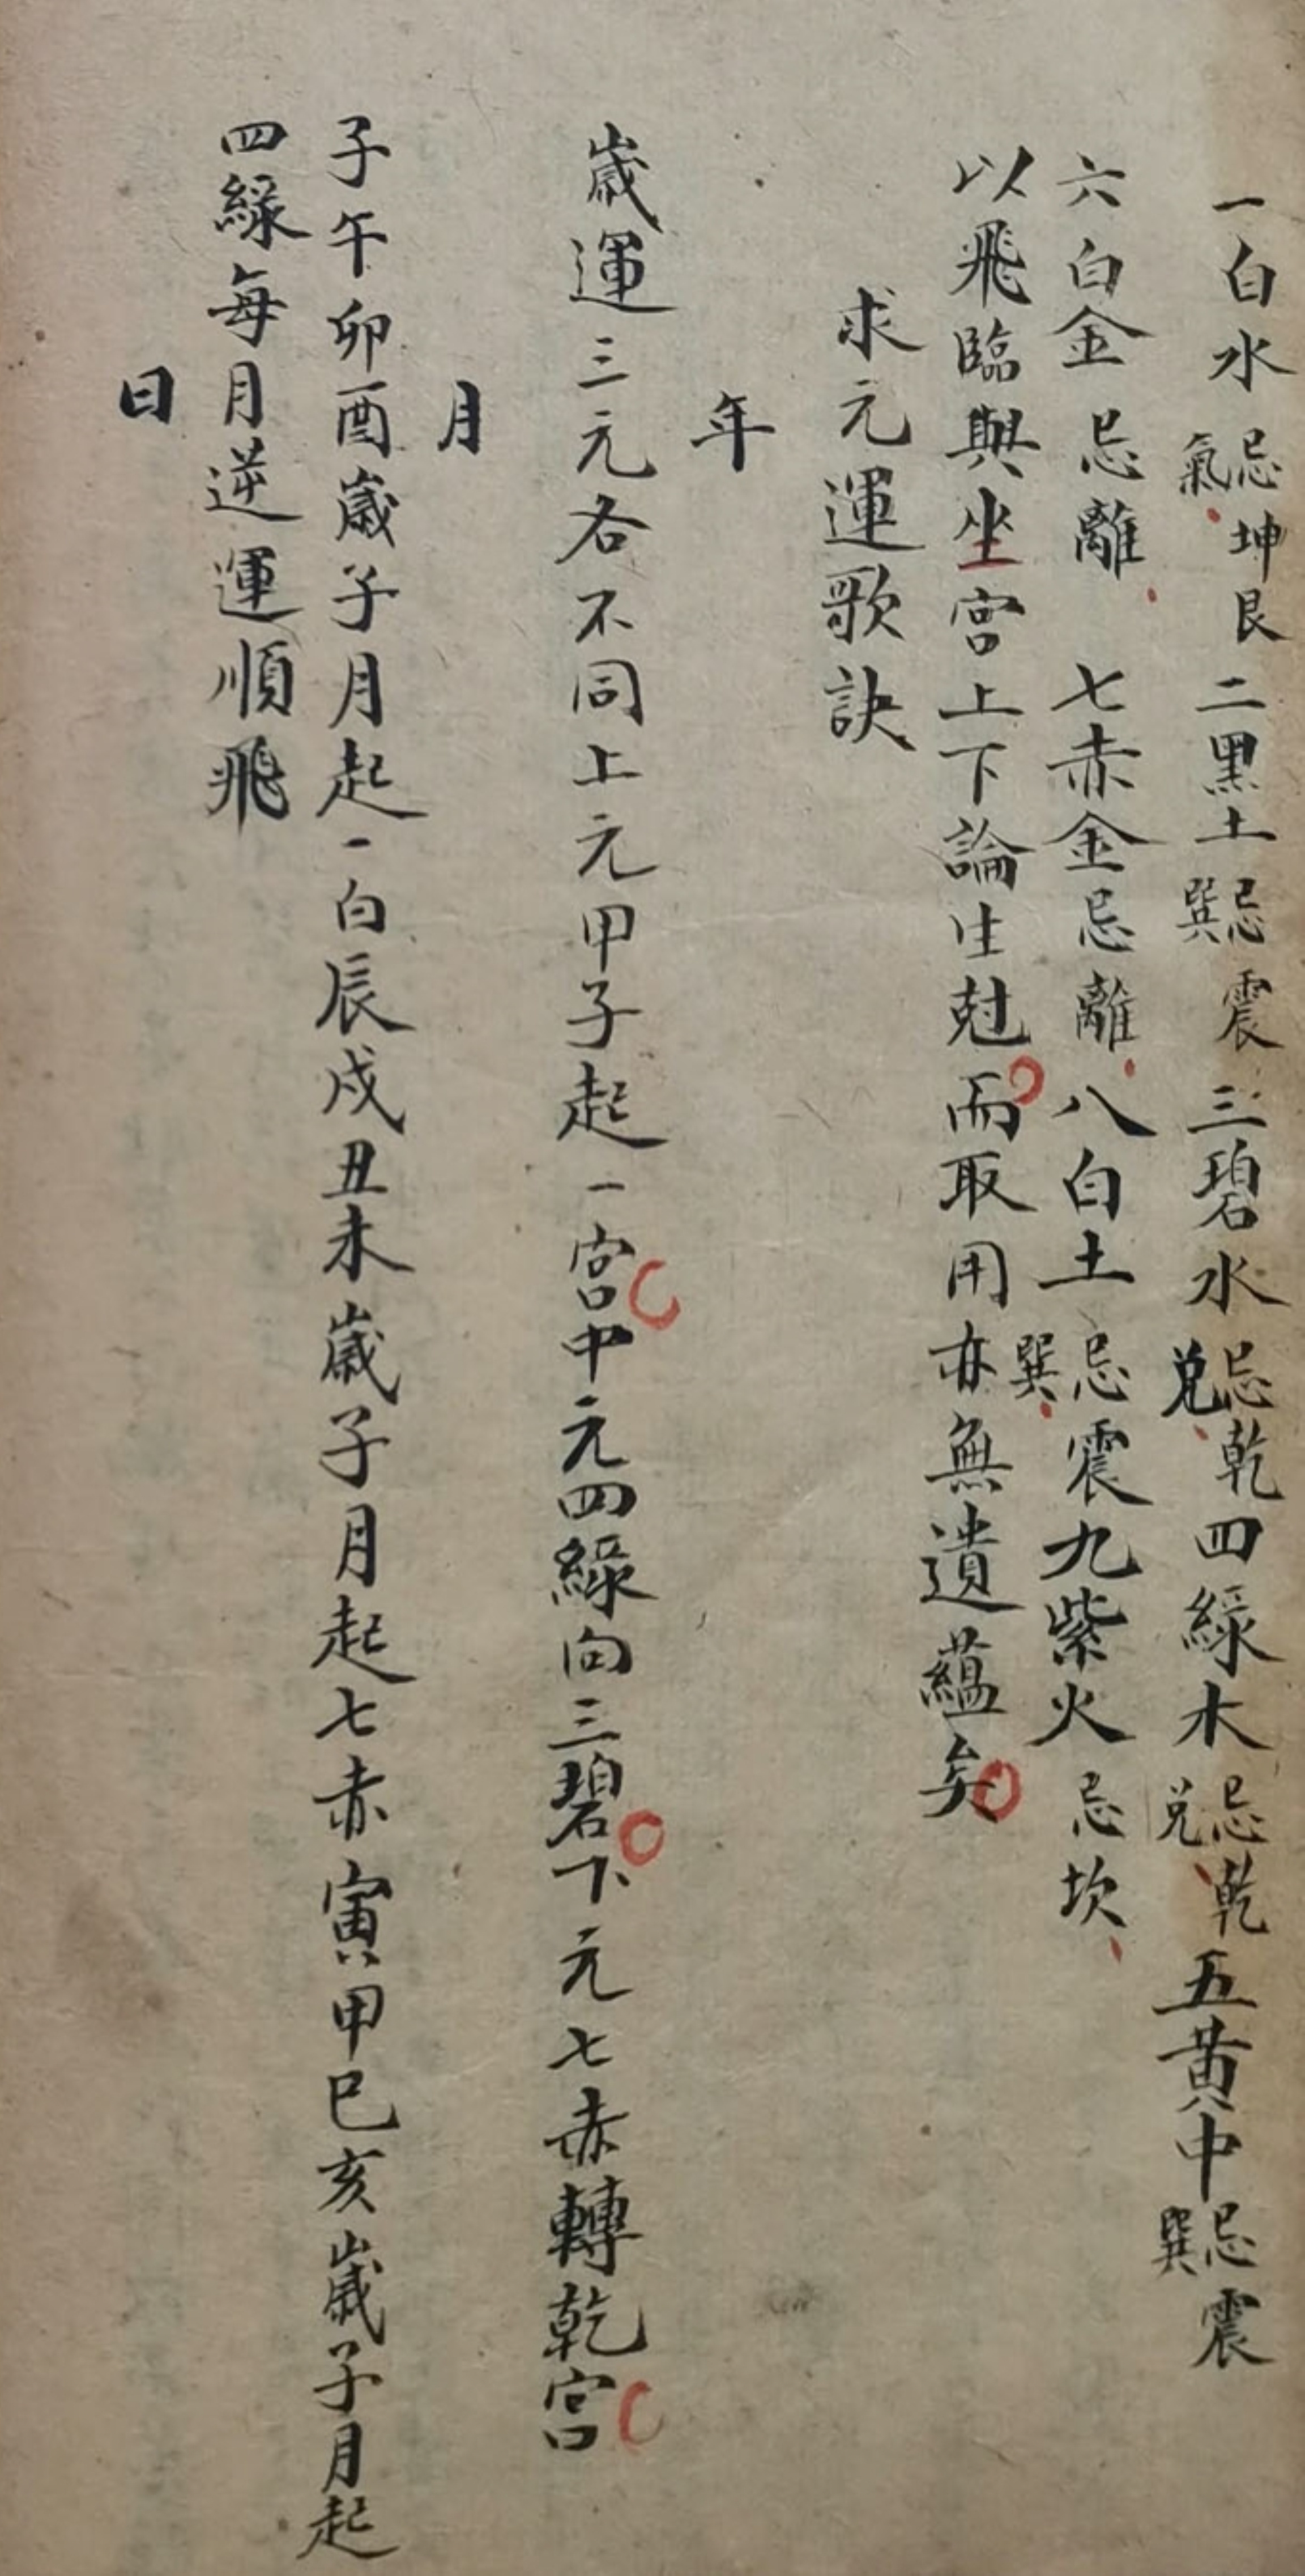 一白水忌坤艮氣二黑土忌震巽三碧水忌乾兌四綠木忌乾兌五黃中忌震巽
六白金忌離七赤金忌離八白土忌震巽九紫火忌坎
以飛臨與坐宮上下論生尅而取用亦無遺蘊矣
求元運歌訣
年
歲運三元各不同上元甲子起一宮中元四綠向三碧下元七赤轉乾宮
月
子午卯酉歲子月起一白辰戌丑未歲子月起七赤寅甲巳亥歲子月起
四綠每月逆運順飛
日